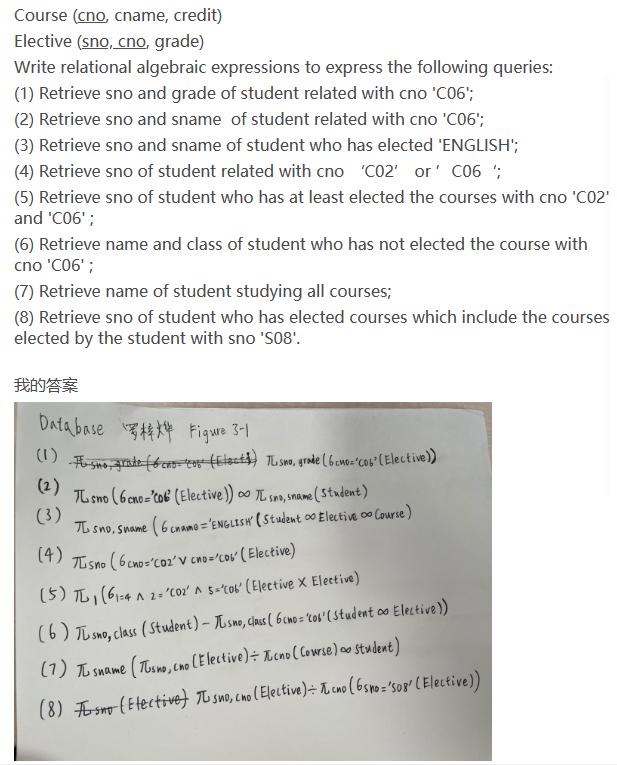 Course (cno, cname, credit)
Elective (sno, cno, grade)
Write relational algebraic expressions to express the following queries:
(1) Retrieve sno and grade of student related with cno 'C06';
(2) Retrieve sno and sname of student related with cno 'C06';
(3) Retrieve sno and sname of student who has elected 'ENGLISH';
(4) Retrieve sno of student related with cno ‘C02’ or ’C06‘;
(5) Retrieve sno of student who has at least elected the courses with cno 'C02'
and 'C06' ;
(6) Retrieve name and class of student who has not elected the course with
cno 'C06' ;
(7) Retrieve name of student studying all courses;
(8) Retrieve sno of student who has elected courses which include the courses
elected by the student with sno 'S08'.
我的答案
Database Figure 3-1
(1) π sno, grade (6 cno='C06' (Elective))
(2) π sno (6 cno='C06' (Elective)) ∞ π sno, sname (Student)
(3) π sno, sname (6 cname='ENGLISH' (Student ∞ Elective ∞ Course)
(4) π sno (6 cno='C02' ∨ cno='C06' (Elective)
(5) π 1 (6 1=4 ∧ 2='C02' ∧ 5='C06' (Elective X Elective)
(6) π sno, class (Student) – π sno, class (6 cno='C06' (Student ∞ Elective))
(7) π sname (π sno, cno (Elective) ÷ π cno (Course) ∞ Student)
(8) π sno (Elective) π sno, cno (Elective) ÷ π cno (6 sno='S08' (Elective))